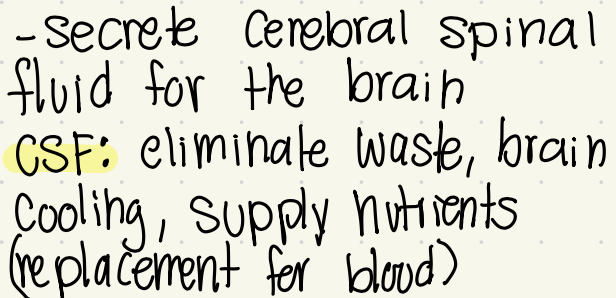 -secrete cerebral spinal
fluid for the brain
CSF: eliminate waste, brain
cooling, supply nutrients
(replacement for blood)